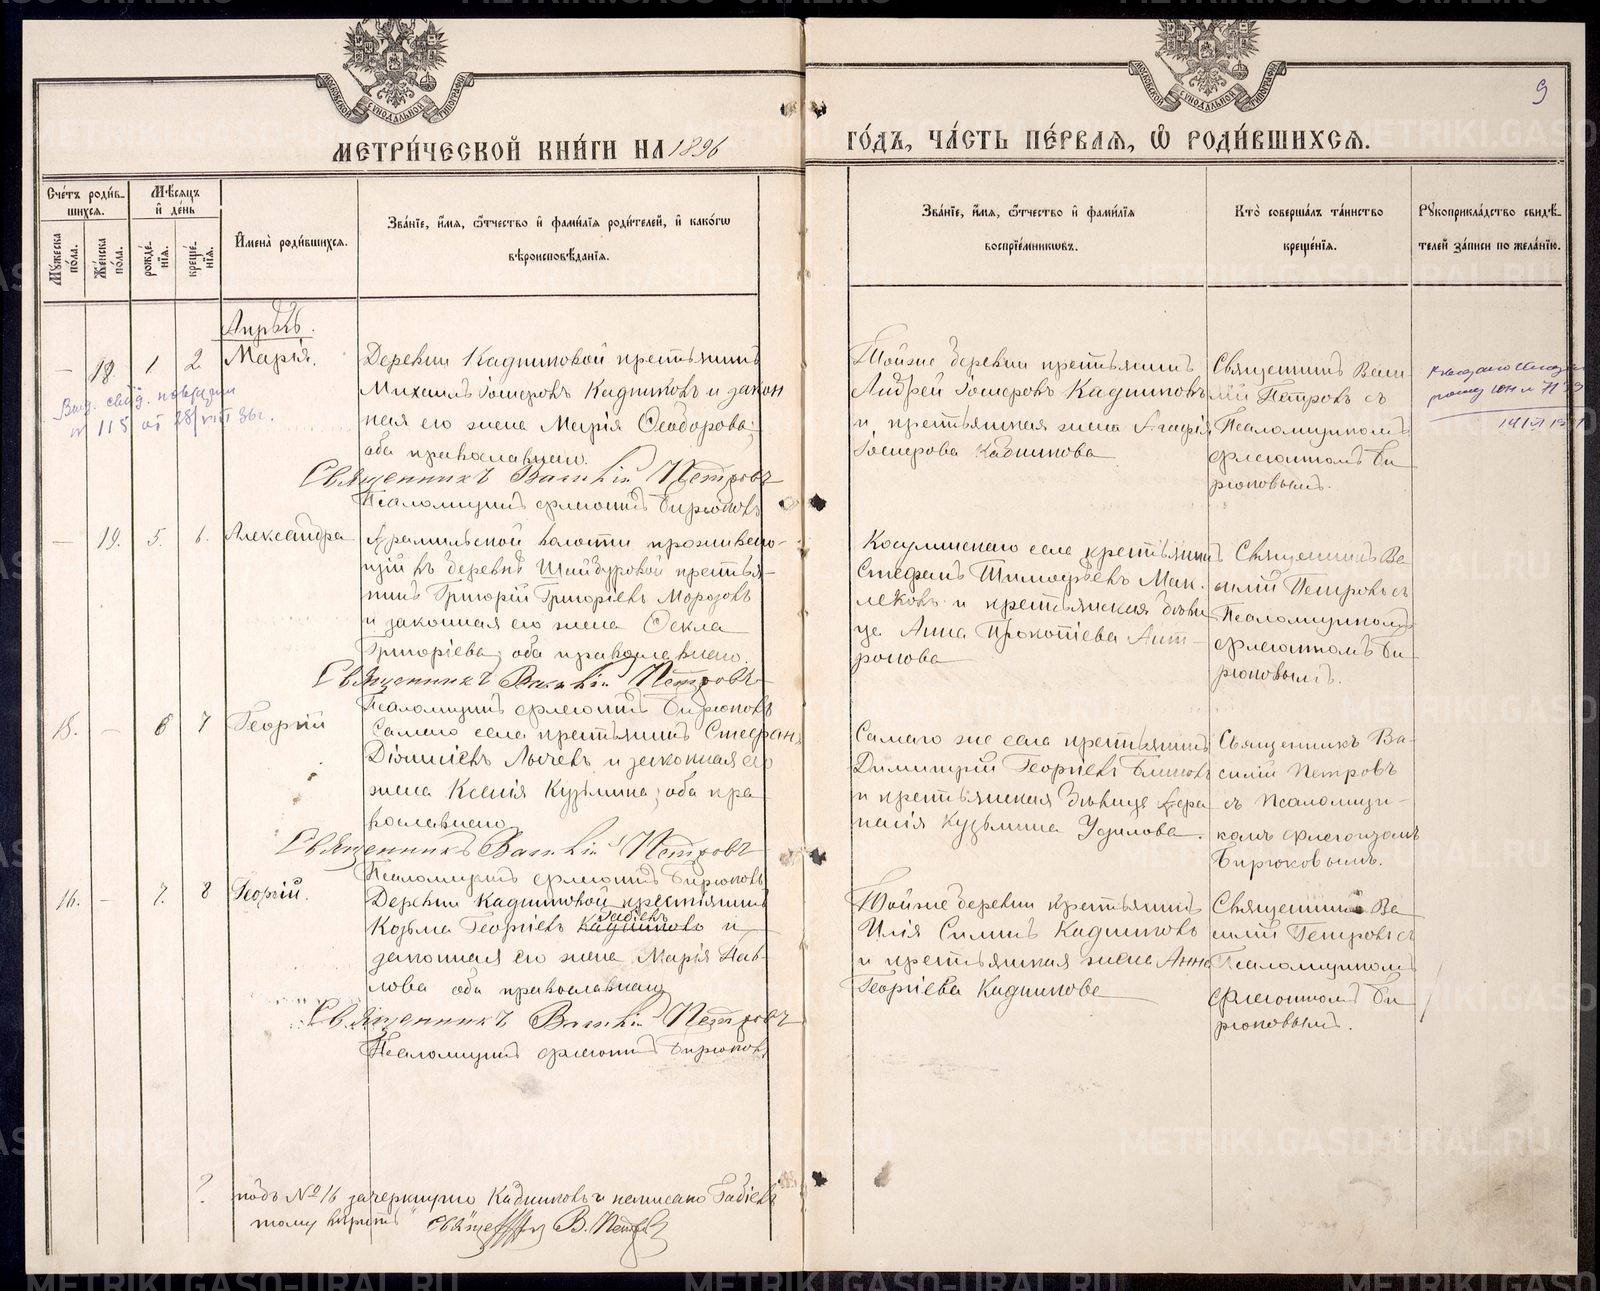 9
МЕТРИ́ЧЕСКОЙ КНИ́ГИ НА 1896 ГО́ДЪ, ЧА́СТЬ ПЕ́РВАЯ, Ѡ РОДИ́ВШИХСЯ.
Сче́тъ роди́в-
шихся.
Мѣ́сяцъ
и де́нь
Мꙋ́жеска
по́ла.
Же́нска
по́ла.
рожде́-
нїя.
креще́-
нїя.
И҆мена̀ роди́вшихся.
Зва́нїе, и҆́мя, ѻ҆́тчество и҆ фами́лїя роди́телей, и҆ како́гѡ
вѣроисповѣ́данїя.
Зва́нїе, и҆́мя, ѻ҆́тчество и҆ фами́лїя
воспрїе́мникѡвъ.
Кто̀ соверша́лъ та́инство
креще́нїя.
Рꙋкоприкла́дство свидѣ́-
телей за́писи по жела́нїю.
Апрѣль.
— 18. 1 2 Марія.
Деревни Кадниковой крестьянинъ
Михаилъ Кадниковъ и закон
ная его жена Марія Ѳеодорова;
оба православнаго.
Священникъ Василій Петровъ
Псаломщикъ Флегонтъ Бирюковъ
Тойже деревни крестьянинъ
Андрей Кадниковъ
и крестьянская жена Агафія
Кадникова
Священникъ Васи-
лій Петровъ съ
Псаломщикомъ
Флегонтомъ Би
рюковымъ.
Выд. свид.
№ 115 от 28/VIII 36г.
— 19. 5. 6. Александра
Арамильской волости проживаю-
щій въ деревнѣ Шайдуровой крестья-
нинъ Григорій Григоріевъ Морозовъ
и законная его жена Ѳекла
Григоріева; оба православнаго.
Священникъ Василій Петровъ
Псаломщикъ Флегонтъ Бирюковъ
Косулинскаго села крестьянинъ
Стефанъ Тимоѳеевъ Мак-
леховъ и крестьянская дѣви
ца Анна Прокопіева Ант-
ропова
Священникъ Ва
силій Петровъ съ
Псаломщикомъ
Флегонтомъ Би
рюковымъ.
15. — 6 7 Георгій
Самаго села крестьянинъ Стефанъ
Діонисіевъ Лычевъ и законная его
жена Ксенія Кузьмина; оба пра
вославнаго
Священникъ Василій Петровъ
Псаломщикъ Флегонтъ Бирюковъ
Самаго же села крестьянинъ
Димитрій Георгіевъ Блиновъ
и крестьянская дѣвица
Кузьмина
Священникъ Ва-
силій Петровъ
съ Псаломщи-
комъ Флегонтомъ
Бирюковымъ.
16. — 7. 8 Георгій.
Деревни Кадниковой крестьянинъ
Козьма Георгіевъ Кадниковъ Бабіевъ и
законная его жена Марія Пав-
лова оба православнаго
Священникъ Василій Петровъ
Псаломщикъ Флегонтъ Бирюковъ
Тойже деревни крестьянинъ
Илія Силинъ Кадниковъ
и крестьянская жена Анна
Георгіева Кадникова
Священникъ Ва
силій Петровъ съ
Псаломщикомъ
Флегонтомъ Би
рюковымъ.
подъ № 16 зачеркнуто Кадниковъ и написано Бабіевъ
тому вѣрить Священникъ В. Петровъ
METRIKI.GASO-URAL.RU